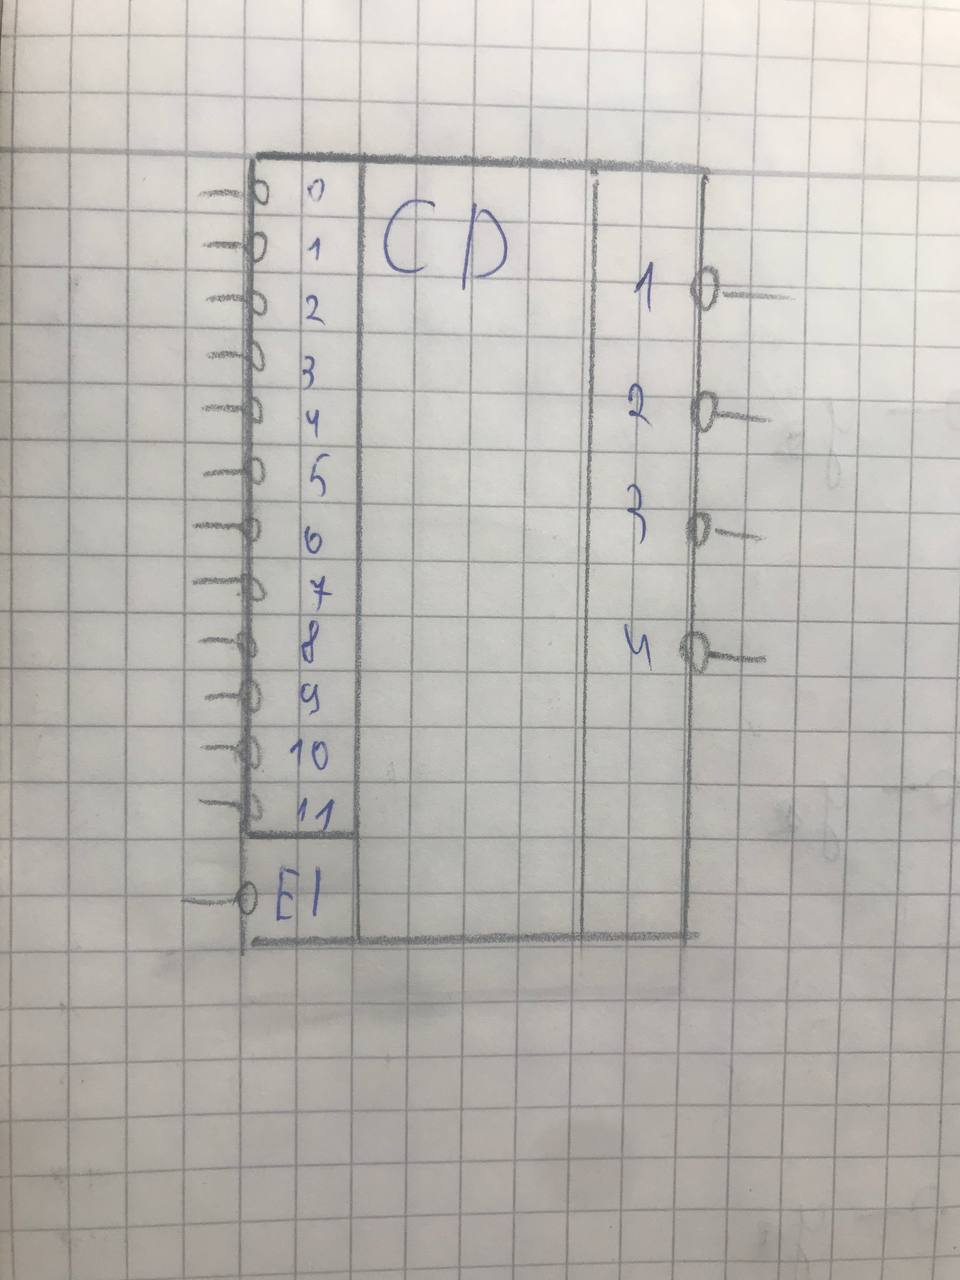 0
1
2
3
4
5
6
7
8
9
10
11
EI
CD
1
2
3
4